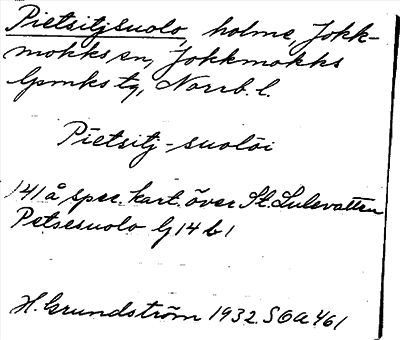 Pietsitjsuolo, holme, Jokk-
mokks sn, Jokkmokks
lpmks tg, Norrb. l.
Pietsitj-suolōi
141 å spec. kart. över St. Lulevatten
Petsesuolo
H. Grundström 1932.